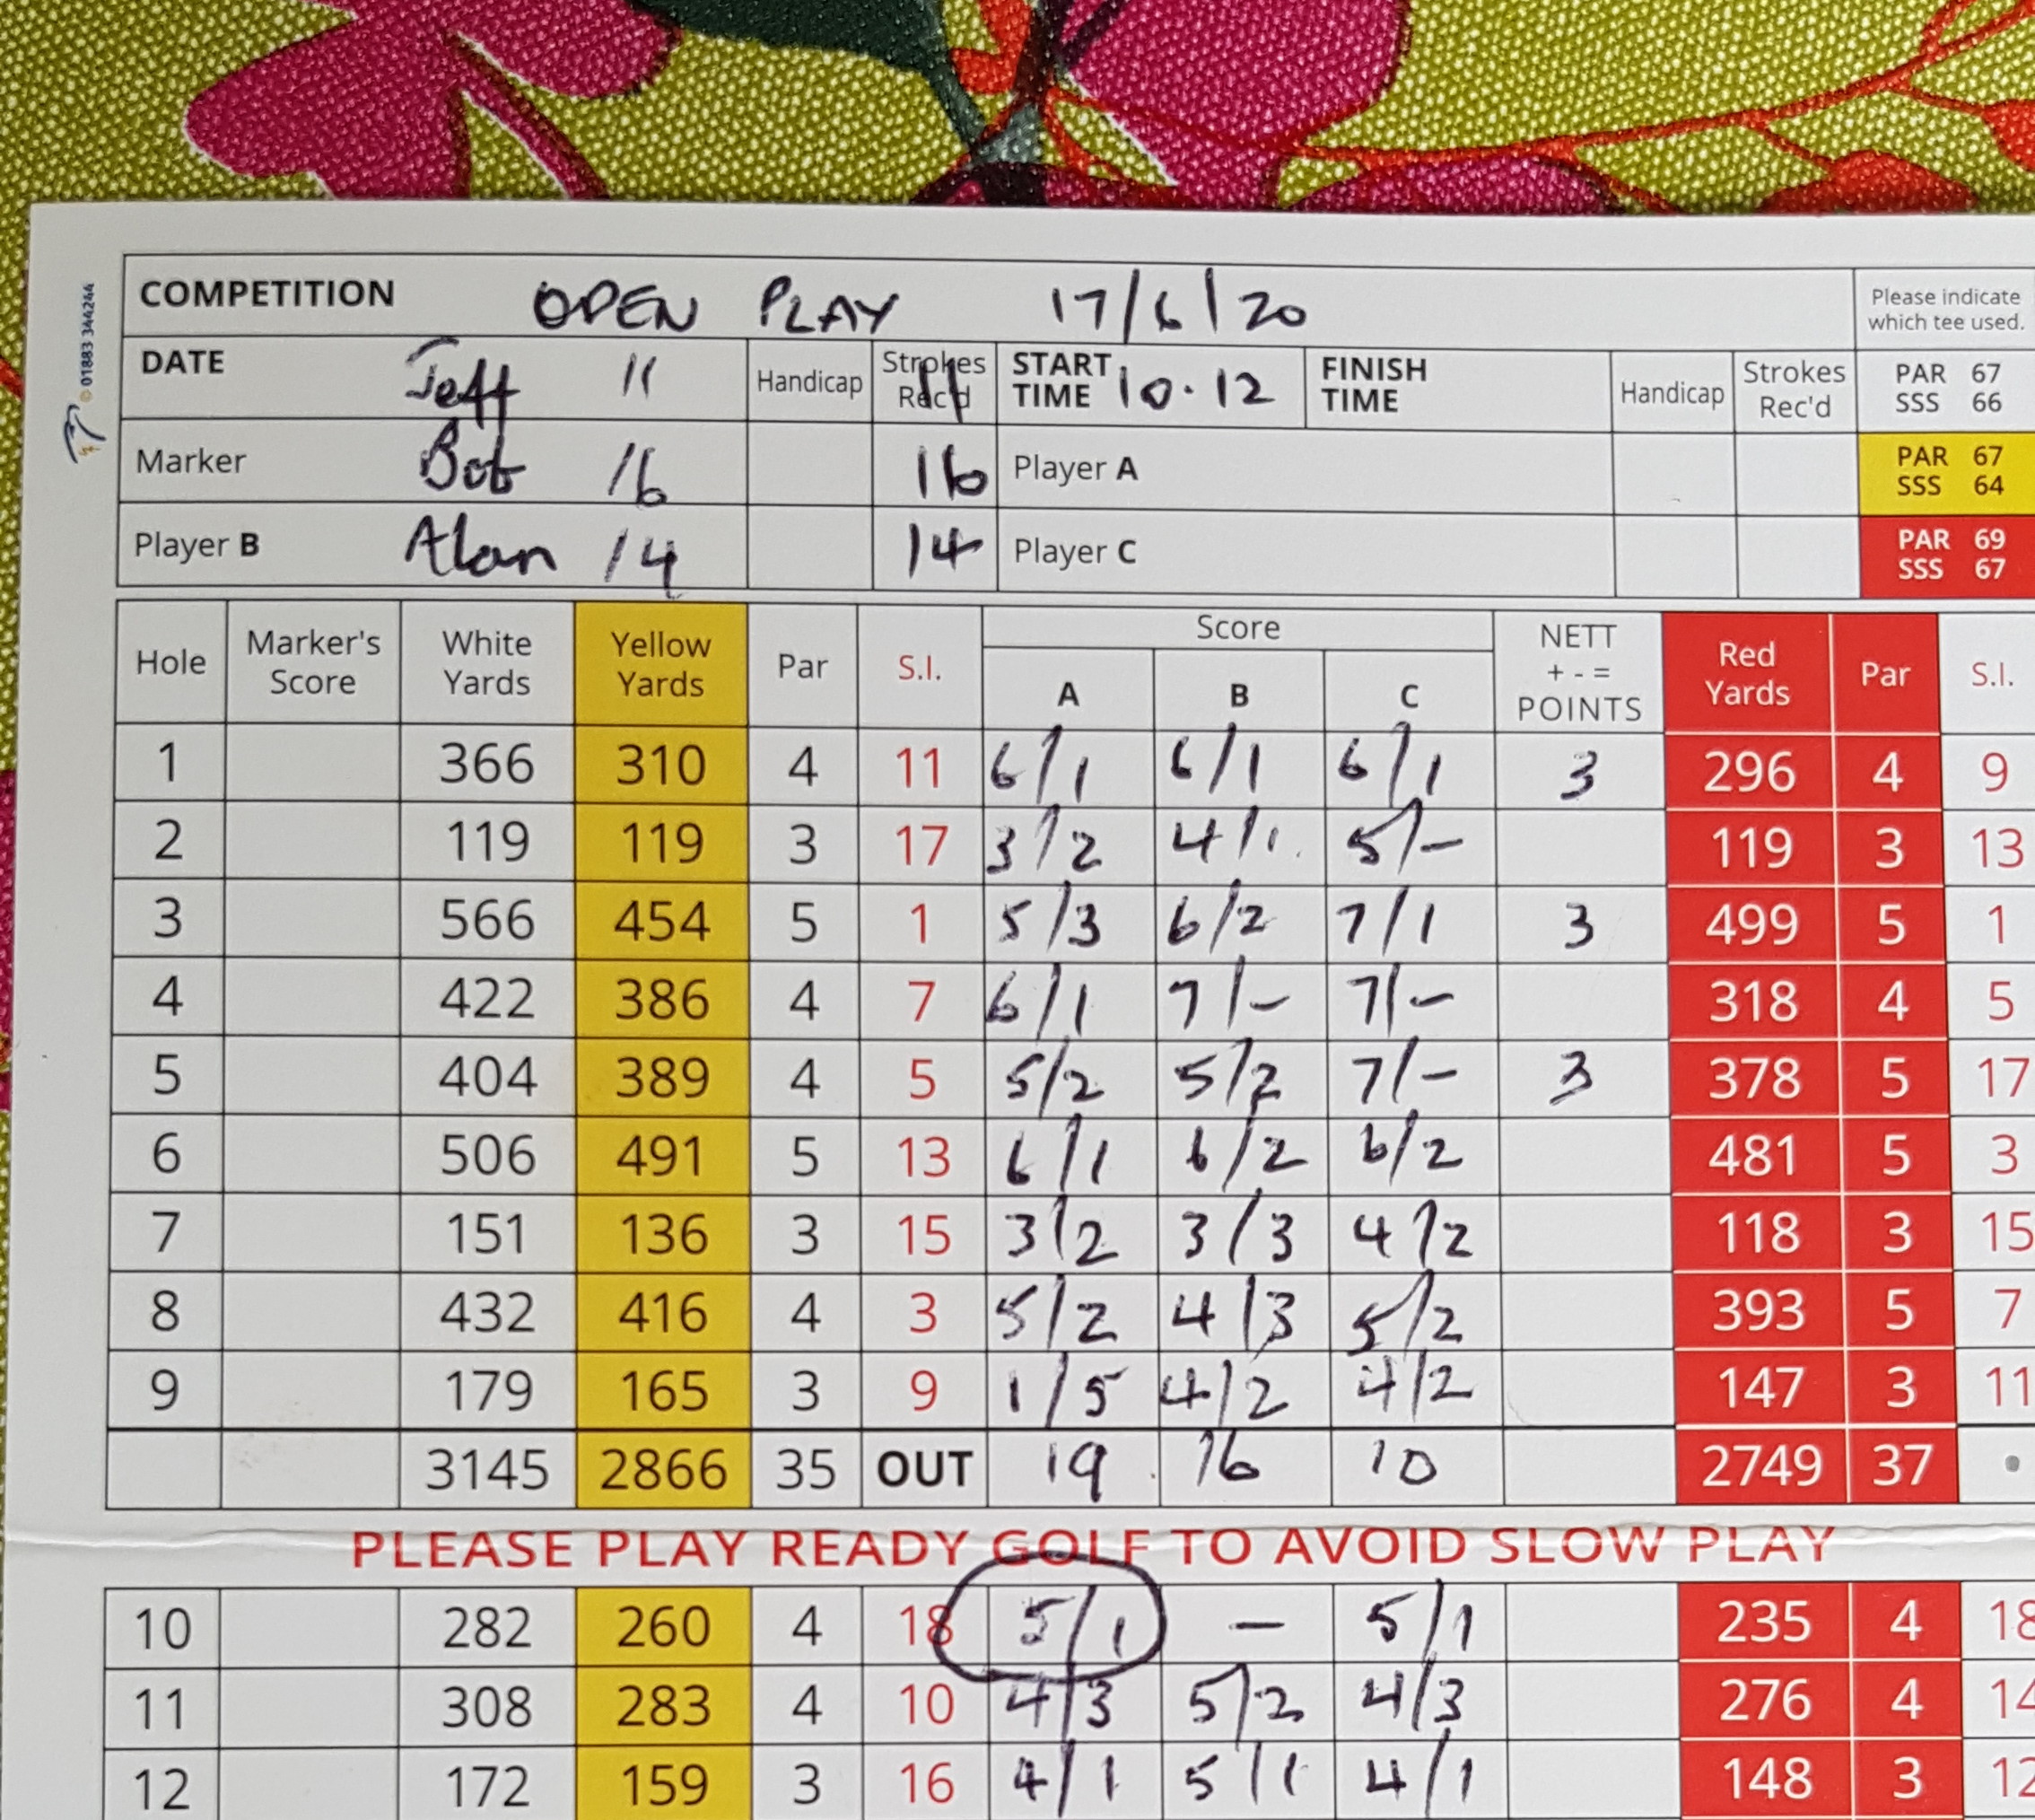 © 01883 344244
COMPETITION OPEN PLAY 17/6/20 Please indicate which tee used.
DATE Jeff 11 Handicap Strokes Rec'd 11 START TIME 10.12 FINISH TIME Handicap Strokes Rec'd PAR 67 SSS 66
Marker Bob 16 16 Player A PAR 67 SSS 64
Player B Alan 14 14 Player C PAR 69 SSS 67
Hole Marker's Score White Yards Yellow Yards Par S.I. Score A B C NETT + - = POINTS Red Yards Par S.I.
1 366 310 4 11 6/1 6/1 6/1 3 296 4 9
2 119 119 3 17 3/2 4/1 5/- 119 3 13
3 566 454 5 1 5/3 6/2 7/1 3 499 5 1
4 422 386 4 7 6/1 7/- 7/- 318 4 5
5 404 389 4 5 5/2 5/2 7/- 3 378 5 17
6 506 491 5 13 6/1 6/2 6/2 481 5 3
7 151 136 3 15 3/2 3/3 4/2 118 3 15
8 432 416 4 3 5/2 4/3 5/2 393 5 7
9 179 165 3 9 1/5 4/2 4/2 147 3 11
3145 2866 35 OUT 19 16 10 2749 37
PLEASE PLAY READY GOLF TO AVOID SLOW PLAY
10 282 260 4 18 5/1 - 5/1 235 4 18
11 308 283 4 10 4/3 5/2 4/3 276 4 14
12 172 159 3 16 4/1 5/1 4/1 148 3 12